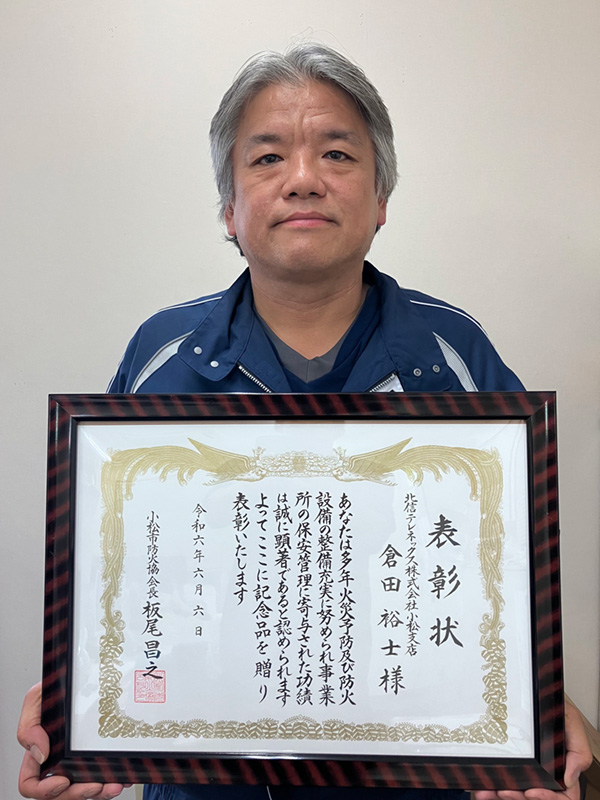 表彰状
北信テレネックス株式会社小松支店
倉田裕士様
あなたは多年火災予防及び防火
設備の整備充実に努められ事業
所の保安管理に寄与された功績
は誠に顕著であると認められます
よってここに記念品を贈り
表彰いたします
令和六年六月六日
小松市防火協会長 板尾昌之